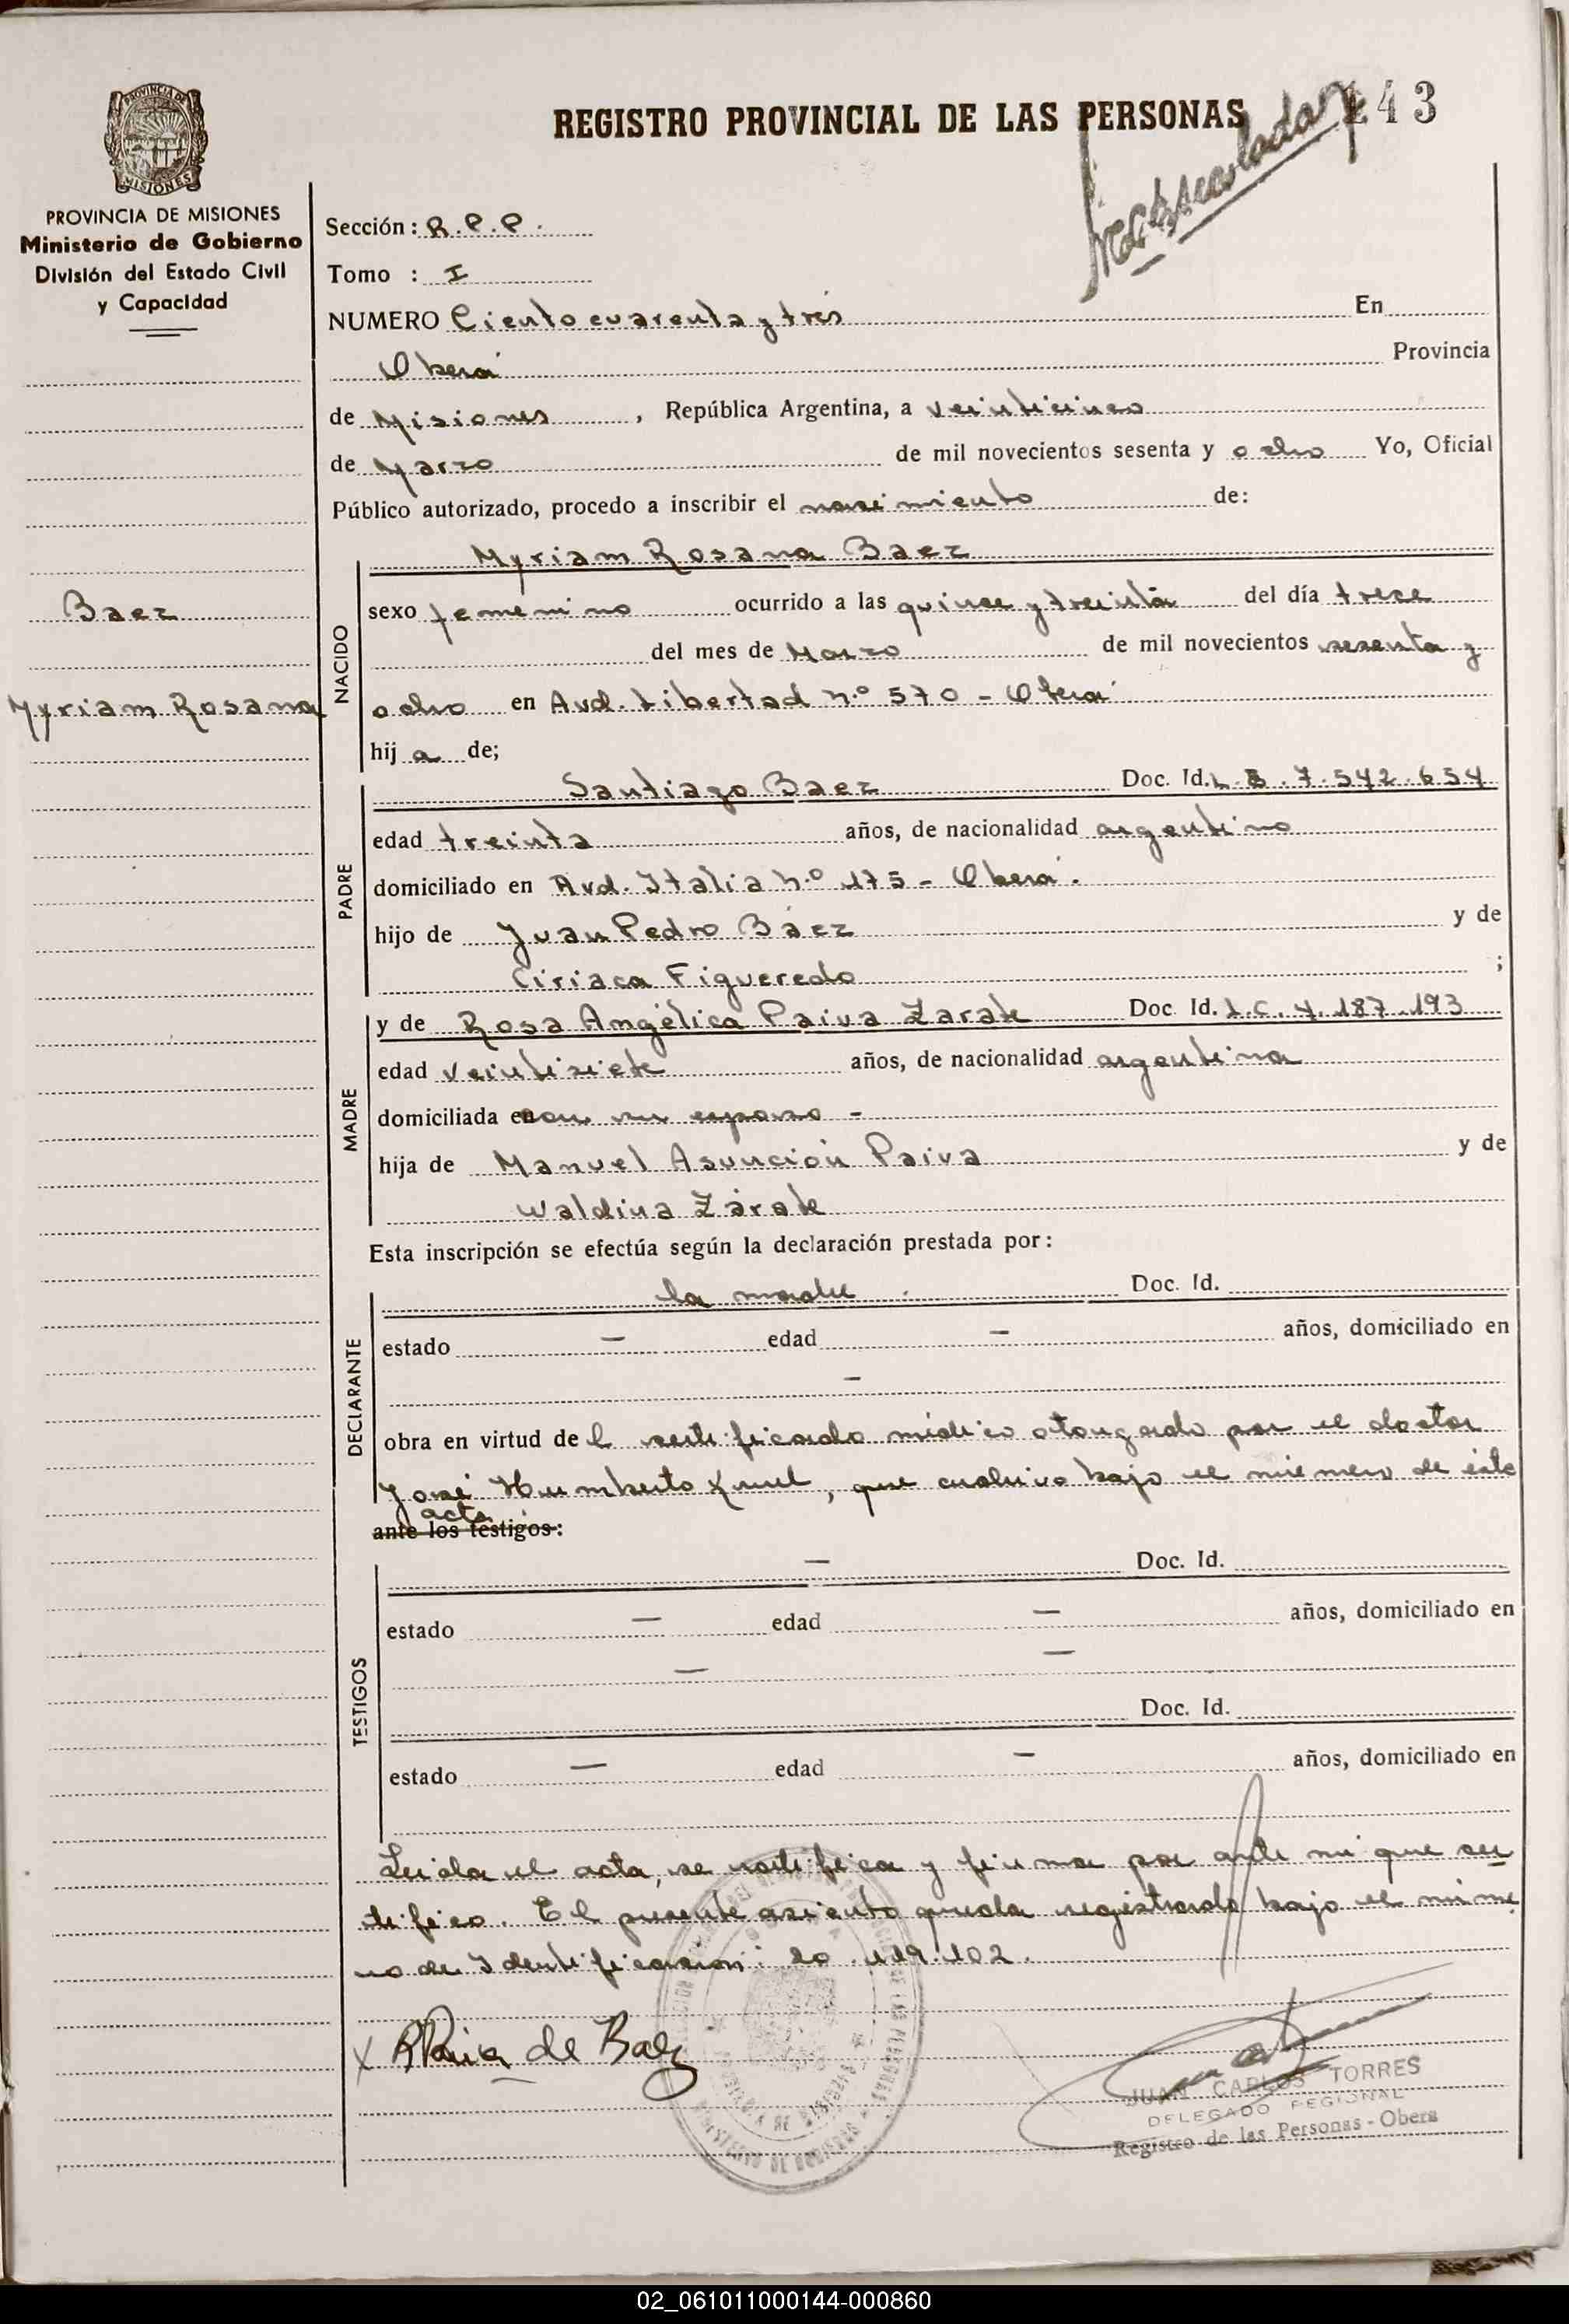 REGISTRO PROVINCIAL DE LAS PERSONAS
143
PROVINCIA DE MISIONES
PROVINCIA DE MISIONES
Ministerio de Gobierno
División del Estado Civil
y Capacidad
Sección: R.P.P.
Tomo : I
NUMERO Ciento cuarenta y tres En
Oberá Provincia
de Misiones, República Argentina, a veinticinco
de Marzo de mil novecientos sesenta y ocho Yo, Oficial
Público autorizado, procedo a inscribir el nacimiento de:
Myriam Rosana Baez
Baez
Myriam Rosana
NACIDO
sexo femenino ocurrido a las quince y treinta del día trece
del mes de Marzo de mil novecientos sesenta y
ocho en Avd. Libertad n.º 570 - Oberá
hij a de;
PADRE
Santiago Baez Doc. Id. L.E. 7.542.654
edad treinta años, de nacionalidad argentino
domiciliado en Avd. Italia n.º 175 - Oberá.
hijo de Juan Pedro Báez y de
Ciriaca Figueredo ;
MADRE
y de Rosa Angélica Paiva Zarate Doc. Id. L.C. 4.187.193
edad veintisiete años, de nacionalidad argentina
domiciliada en con su esposo -
hija de Manuel Asunción Paiva y de
Waldina Zárate
Esta inscripción se efectúa según la declaración prestada por:
DECLARANTE
la madre . Doc. Id.
estado — edad — años, domiciliado en
—
obra en virtud de l certificado médico otorgado por el doctor
José Humberto , que archivo bajo el número de esta
acta
ante los testigos:
TESTIGOS
— Doc. Id.
estado — edad — años, domiciliado en
— —
Doc. Id.
estado — edad — años, domiciliado en
Leida el acta, se ratifica y firma por ante mi que cer
tifico. El presente asiento queda registrado bajo el núme
ro de Identificación: 20.119.102.
x RPaiva de Baez
JUAN CARLOS TORRES
DELEGADO REGIONAL
Registro de las Personas - Obera
02_061011000144-000860